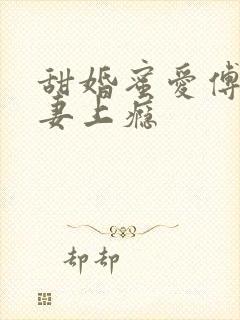 甜婚蜜爱傅
妻上瘾
却却